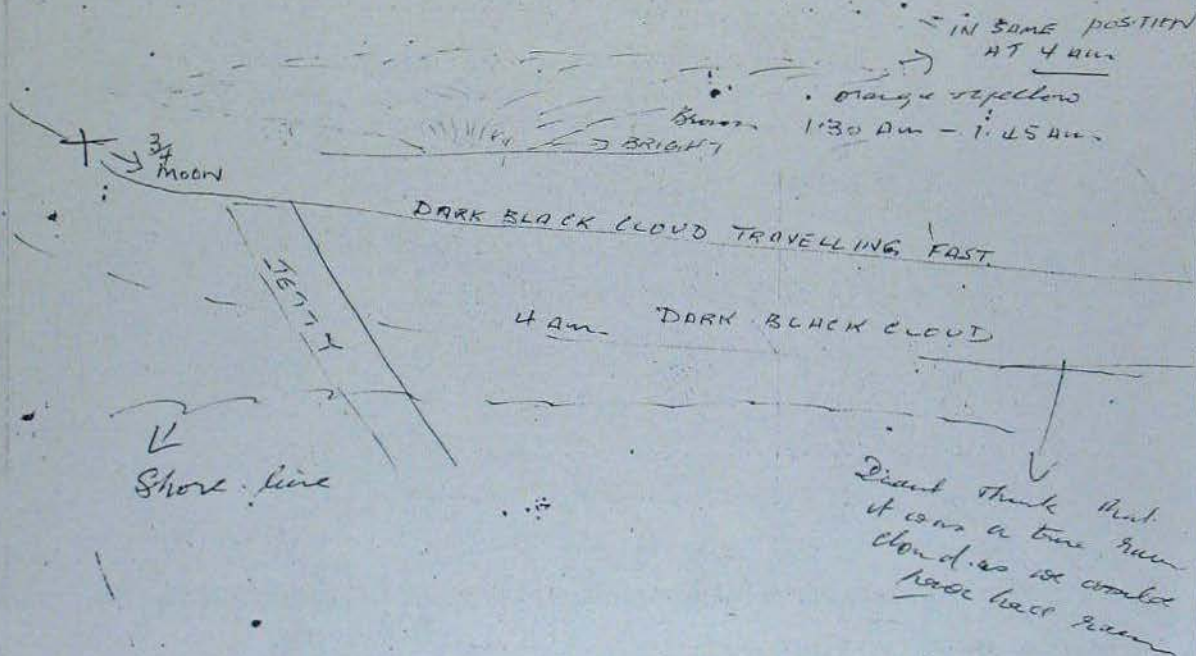 IN SAME POSITION
AT 4 am
orange & yellow
Brown 1.30 Am - 1.45 Am
BRIGHT
3/4
MOON
DARK BLACK CLOUD TRAVELLING FAST.
JETTY
4 am DARK BLACK CLOUD
Shore line
Didnt think that
it was a true rain
cloud as we would
have had rain